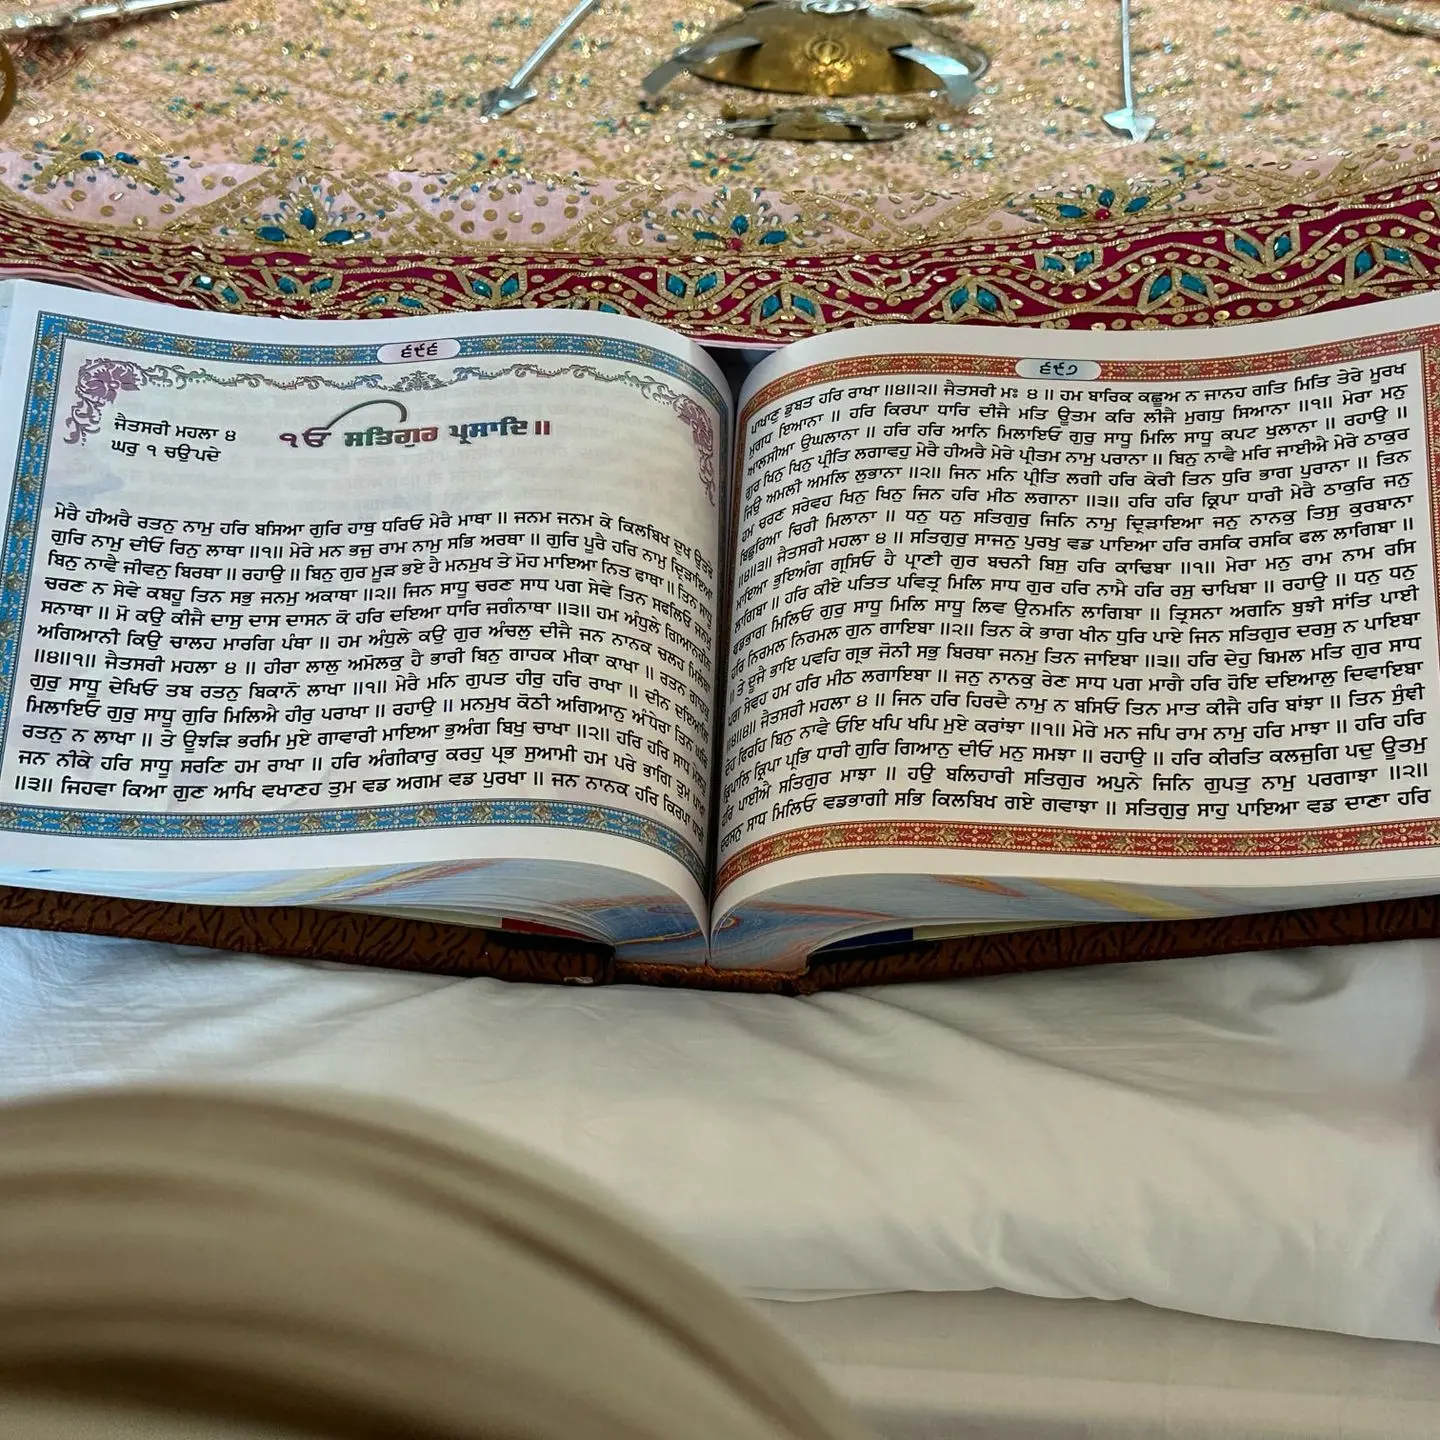 ੬੯੬
ਜੈਤਸਰੀ ਮਹਲਾ ੪
ਘਰੁ ੧ ਚਉਪਦੇ
ੴ ਸਤਿਗੁਰ ਪ੍ਰਸਾਦਿ॥
ਮੇਰੈ ਹੀਅਰੈ ਰਤਨੁ ਨਾਮੁ ਹਰਿ ਬਸਿਆ ਗੁਰਿ ਹਾਥੁ ਧਰਿਓ ਮੇਰੈ ਮਾਥਾ ॥ ਜਨਮ ਜਨਮ ਕੇ ਕਿਲਬਿਖ ਦੁਖ ਉਤਰੇ
ਗੁਰਿ ਨਾਮੁ ਦੀਓ ਰਿਨੁ ਲਾਥਾ ॥੧॥ ਮੇਰੇ ਮਨ ਭਜੁ ਰਾਮ ਨਾਮੁ ਸਭਿ ਅਰਥਾ ॥ ਗੁਰਿ ਪੂਰੈ ਹਰਿ ਨਾਮੁ ਦ੍ਰਿੜਾਇਆ
ਬਿਨੁ ਨਾਵੈ ਜੀਵਨੁ ਬਿਰਥਾ ॥ ਰਹਾਉ ॥ ਬਿਨੁ ਗੁਰ ਮੂੜ ਭਏ ਹੈ ਮਨਮੁਖ ਤੇ ਮੋਹ ਮਾਇਆ ਨਿਤ ਫਾਥਾ ॥ ਤਿਨ ਸਾਧੂ
ਚਰਣ ਨ ਸੇਵੇ ਕਬਹੂ ਤਿਨ ਸਭੁ ਜਨਮੁ ਅਕਾਥਾ ॥੨॥ ਜਿਨ ਸਾਧੂ ਚਰਣ ਸਾਧ ਪਗ ਸੇਵੇ ਤਿਨ ਸਫਲਿਓ ਜਨਮੁ
ਸਨਾਥਾ ॥ ਮੋ ਕਉ ਕੀਜੈ ਦਾਸੁ ਦਾਸ ਦਾਸਨ ਕੋ ਹਰਿ ਦਇਆ ਧਾਰਿ ਜਗੰਨਾਥਾ ॥੩॥ ਹਮ ਅੰਧੁਲੇ ਗਿਆਨਹੀਨ
ਅਗਿਆਨੀ ਕਿਉ ਚਾਲਹ ਮਾਰਗਿ ਪੰਥਾ ॥ ਹਮ ਅੰਧੁਲੇ ਕਉ ਗੁਰ ਅੰਚਲੁ ਦੀਜੈ ਜਨ ਨਾਨਕ ਚਲਹ ਮਿਲੰਥਾ
॥੪॥੧॥ ਜੈਤਸਰੀ ਮਹਲਾ ੪ ॥ ਹੀਰਾ ਲਾਲੁ ਅਮੋਲਕੁ ਹੈ ਭਾਰੀ ਬਿਨੁ ਗਾਹਕ ਮੀਕਾ ਕਾਖਾ ॥ ਰਤਨ ਗਾਹਕੁ
ਗੁਰੁ ਸਾਧੂ ਦੇਖਿਓ ਤਬ ਰਤਨੁ ਬਿਕਾਨੋ ਲਾਖਾ ॥੧॥ ਮੇਰੈ ਮਨਿ ਗੁਪਤ ਹੀਰੁ ਹਰਿ ਰਾਖਾ ॥ ਦੀਨ ਦਇਆਲਿ
ਮਿਲਾਇਓ ਗੁਰੁ ਸਾਧੂ ਗੁਰਿ ਮਿਲਿਐ ਹੀਰੁ ਪਰਾਖਾ ॥ ਰਹਾਉ ॥ ਮਨਮੁਖ ਕੋਠੀ ਅਗਿਆਨੁ ਅੰਧੇਰਾ ਤਿਨ ਘਰਿ
ਰਤਨੁ ਨ ਲਾਖਾ ॥ ਤੇ ਊਝੜਿ ਭਰਮਿ ਮੁਏ ਗਾਵਾਰੀ ਮਾਇਆ ਭੁਅੰਗ ਬਿਖੁ ਚਾਖਾ ॥੨॥ ਹਰਿ ਹਰਿ ਸਾਧ ਮੇਲਹੁ
ਜਨ ਨੀਕੇ ਹਰਿ ਸਾਧੂ ਸਰਣਿ ਹਮ ਰਾਖਾ ॥ ਹਰਿ ਅੰਗੀਕਾਰੁ ਕਰਹੁ ਪ੍ਰਭ ਸੁਆਮੀ ਹਮ ਪਰੇ ਭਾਗਿ ਤੁਮ ਪਾਖਾ
॥੩॥ ਜਿਹਵਾ ਕਿਆ ਗੁਣ ਆਖਿ ਵਖਾਣਹ ਤੁਮ ਵਡ ਅਗਮ ਵਡ ਪੁਰਖਾ ॥ ਜਨ ਨਾਨਕ ਹਰਿ ਕਿਰਪਾ ਧਾਰੀ
੬੯੭
ਪਾਖਾਣੁ ਡੁਬਤ ਹਰਿ ਰਾਖਾ ॥੪॥੨॥ ਜੈਤਸਰੀ ਮਃ ੪ ॥ ਹਮ ਬਾਰਿਕ ਕਛੂਅ ਨ ਜਾਨਹ ਗਤਿ ਮਿਤਿ ਤੇਰੇ ਮੂਰਖ
ਮੁਗਧ ਇਆਨਾ ॥ ਹਰਿ ਕਿਰਪਾ ਧਾਰਿ ਦੀਜੈ ਮਤਿ ਊਤਮ ਕਰਿ ਲੀਜੈ ਮੁਗਧੁ ਸਿਆਨਾ ॥੧॥ ਮੇਰਾ ਮਨੁ
ਆਲਸੀਆ ਉਘਲਾਨਾ ॥ ਹਰਿ ਹਰਿ ਆਨਿ ਮਿਲਾਇਓ ਗੁਰੁ ਸਾਧੂ ਮਿਲਿ ਸਾਧੂ ਕਪਟ ਖੁਲਾਨਾ ॥ ਰਹਾਉ ॥
ਗੁਰ ਖਿਨੁ ਖਿਨੁ ਪ੍ਰੀਤਿ ਲਗਾਵਹੁ ਮੇਰੈ ਹੀਅਰੈ ਮੇਰੇ ਪ੍ਰੀਤਮ ਨਾਮੁ ਪਰਾਨਾ ॥ ਬਿਨੁ ਨਾਵੈ ਮਰਿ ਜਾਈਐ ਮੇਰੇ ਠਾਕੁਰ
ਜਿਉ ਅਮਲੀ ਅਮਲਿ ਲੁਭਾਨਾ ॥੨॥ ਜਿਨ ਮਨਿ ਪ੍ਰੀਤਿ ਲਗੀ ਹਰਿ ਕੇਰੀ ਤਿਨ ਧੁਰਿ ਭਾਗ ਪੁਰਾਨਾ ॥ ਤਿਨ
ਹਮ ਚਰਣ ਸਰੇਵਹ ਖਿਨੁ ਖਿਨੁ ਜਿਨ ਹਰਿ ਮੀਠ ਲਗਾਨਾ ॥੩॥ ਹਰਿ ਹਰਿ ਕ੍ਰਿਪਾ ਧਾਰੀ ਮੇਰੈ ਠਾਕੁਰਿ ਜਨੁ
ਬਿਛੁਰਿਆ ਚਿਰੀ ਮਿਲਾਨਾ ॥ ਧਨੁ ਧਨੁ ਸਤਿਗੁਰੁ ਜਿਨਿ ਨਾਮੁ ਦ੍ਰਿੜਾਇਆ ਜਨੁ ਨਾਨਕੁ ਤਿਸੁ ਕੁਰਬਾਨਾ
॥੪॥੩॥ ਜੈਤਸਰੀ ਮਹਲਾ ੪ ॥ ਸਤਿਗੁਰੁ ਸਾਜਨੁ ਪੁਰਖੁ ਵਡ ਪਾਇਆ ਹਰਿ ਰਸਕਿ ਰਸਕਿ ਫਲ ਲਾਗਿਬਾ ॥
ਮਾਇਆ ਭੁਇਅੰਗ ਗ੍ਰਸਿਓ ਹੈ ਪ੍ਰਾਣੀ ਗੁਰ ਬਚਨੀ ਬਿਸੁ ਹਰਿ ਕਾਢਿਬਾ ॥੧॥ ਮੇਰਾ ਮਨੁ ਰਾਮ ਨਾਮ ਰਸਿ
ਲਾਗਿਬਾ ॥ ਹਰਿ ਕੀਏ ਪਤਿਤ ਪਵਿਤ੍ਰ ਮਿਲਿ ਸਾਧ ਗੁਰ ਹਰਿ ਨਾਮੈ ਹਰਿ ਰਸੁ ਚਾਖਿਬਾ ॥ ਰਹਾਉ ॥ ਧਨੁ ਧਨੁ
ਵਡਭਾਗ ਮਿਲਿਓ ਗੁਰੁ ਸਾਧੂ ਮਿਲਿ ਸਾਧੂ ਲਿਵ ਉਨਮਨਿ ਲਾਗਿਬਾ ॥ ਤ੍ਰਿਸਨਾ ਅਗਨਿ ਬੁਝੀ ਸਾਂਤਿ ਪਾਈ
ਹਰਿ ਨਿਰਮਲ ਨਿਰਮਲ ਗੁਨ ਗਾਇਬਾ ॥੨॥ ਤਿਨ ਕੇ ਭਾਗ ਖੀਨ ਧੁਰਿ ਪਾਏ ਜਿਨ ਸਤਿਗੁਰ ਦਰਸੁ ਨ ਪਾਇਬਾ
॥ ਤੇ ਦੂਜੈ ਭਾਇ ਪਵਹਿ ਗ੍ਰਭ ਜੋਨੀ ਸਭੁ ਬਿਰਥਾ ਜਨਮੁ ਤਿਨ ਜਾਇਬਾ ॥੩॥ ਹਰਿ ਦੇਹੁ ਬਿਮਲ ਮਤਿ ਗੁਰ ਸਾਧ
ਪਗ ਸੇਵਹ ਹਮ ਹਰਿ ਮੀਠ ਲਗਾਇਬਾ ॥ ਜਨੁ ਨਾਨਕੁ ਰੇਣ ਸਾਧ ਪਗ ਮਾਗੈ ਹਰਿ ਹੋਇ ਦਇਆਲੁ ਦਿਵਾਇਬਾ
॥੪॥੪॥ ਜੈਤਸਰੀ ਮਹਲਾ ੪ ॥ ਜਿਨ ਹਰਿ ਹਿਰਦੈ ਨਾਮੁ ਨ ਬਸਿਓ ਤਿਨ ਮਾਤ ਕੀਜੈ ਹਰਿ ਬਾਂਝਾ ॥ ਤਿਨ ਸੁੰਞੀ
ਦੇਹ ਫਿਰਹਿ ਬਿਨੁ ਨਾਵੈ ਓਇ ਖਪਿ ਖਪਿ ਮੁਏ ਕਰਾਂਝਾ ॥੧॥ ਮੇਰੇ ਮਨ ਜਪਿ ਰਾਮ ਨਾਮੁ ਹਰਿ ਮਾਝਾ ॥ ਹਰਿ ਹਰਿ
ਕ੍ਰਿਪਾਲਿ ਕ੍ਰਿਪਾ ਪ੍ਰਭਿ ਧਾਰੀ ਗੁਰਿ ਗਿਆਨੁ ਦੀਓ ਮਨੁ ਸਮਝਾ ॥ ਰਹਾਉ ॥ ਹਰਿ ਕੀਰਤਿ ਕਲਜੁਗਿ ਪਦੁ ਊਤਮੁ
ਹਰਿ ਪਾਈਐ ਸਤਿਗੁਰ ਮਾਝਾ ॥ ਹਉ ਬਲਿਹਾਰੀ ਸਤਿਗੁਰ ਅਪੁਨੇ ਜਿਨਿ ਗੁਪਤੁ ਨਾਮੁ ਪਰਗਾਝਾ ॥੨॥
ਦਰਸਨੁ ਸਾਧ ਮਿਲਿਓ ਵਡਭਾਗੀ ਸਭਿ ਕਿਲਬਿਖ ਗਏ ਗਵਾਝਾ ॥ ਸਤਿਗੁਰੁ ਸਾਹੁ ਪਾਇਆ ਵਡ ਦਾਣਾ ਹਰਿ